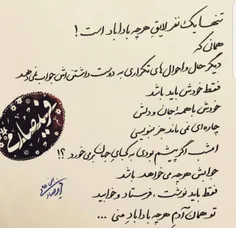 تنها یک نفر لایق هرچه باداباد است !
همان که
دیگر حال و احوال های تکراری به دوست داشتن اش جواب نمی دهد
فقط خودش باید باشد
خودش با همه جان و دلش
چاره ای نمی ماند جز نویسی
امشب اگر پیشم بودی به کجای جهان برمی خورد ؟!
جوابش هرچه می خواهد باشد
فقط باید نوشت ، فرستاد و خوابید
تو همان آدم هرچه باداباد منی ...